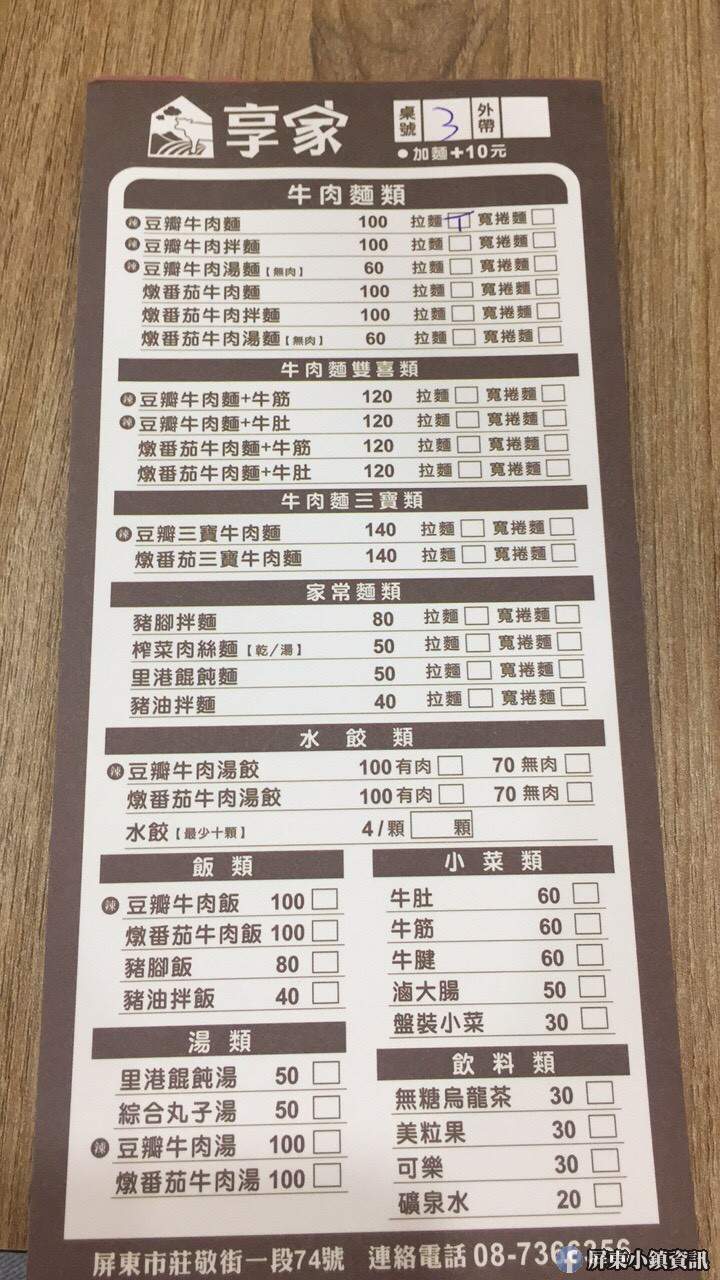 享家 桌號 3 外帶
●加麵+10元
牛肉麵類
辣 豆瓣牛肉麵 100 拉麵 寬捲麵
辣 豆瓣牛肉拌麵 100 拉麵 寬捲麵
辣 豆瓣牛肉湯麵【無肉】 60 拉麵 寬捲麵
燉番茄牛肉麵 100 拉麵 寬捲麵
燉番茄牛肉拌麵 100 拉麵 寬捲麵
燉番茄牛肉湯麵【無肉】 60 拉麵 寬捲麵
牛肉麵雙喜類
辣 豆瓣牛肉麵+牛筋 120 拉麵 寬捲麵
辣 豆瓣牛肉麵+牛肚 120 拉麵 寬捲麵
燉番茄牛肉麵+牛筋 120 拉麵 寬捲麵
燉番茄牛肉麵+牛肚 120 拉麵 寬捲麵
牛肉麵三寶類
辣 豆瓣三寶牛肉麵 140 拉麵 寬捲麵
燉番茄三寶牛肉麵 140 拉麵 寬捲麵
家常麵類
豬腳拌麵 80 拉麵 寬捲麵
榨菜肉絲麵【乾/湯】 50 拉麵 寬捲麵
里港餛飩麵 50 拉麵 寬捲麵
豬油拌麵 40 拉麵 寬捲麵
水餃類
辣 豆瓣牛肉湯餃 100有肉 70 無肉
燉番茄牛肉湯餃 100有肉 70 無肉
水餃【最少十顆】 4/顆 顆
飯類
辣 豆瓣牛肉飯 100
燉番茄牛肉飯 100
豬腳飯 80
豬油拌飯 40
湯類
里港餛飩湯 50
綜合丸子湯 50
辣 豆瓣牛肉湯 100
燉番茄牛肉湯 100
小菜類
牛肚 60
牛筋 60
牛腱 60
滷大腸 50
盤裝小菜 30
飲料類
無糖烏龍茶 30
美粒果 30
可樂 30
礦泉水 20
屏東市莊敬街一段74號 連絡電話 08-7366256
屏東小鎮資訊